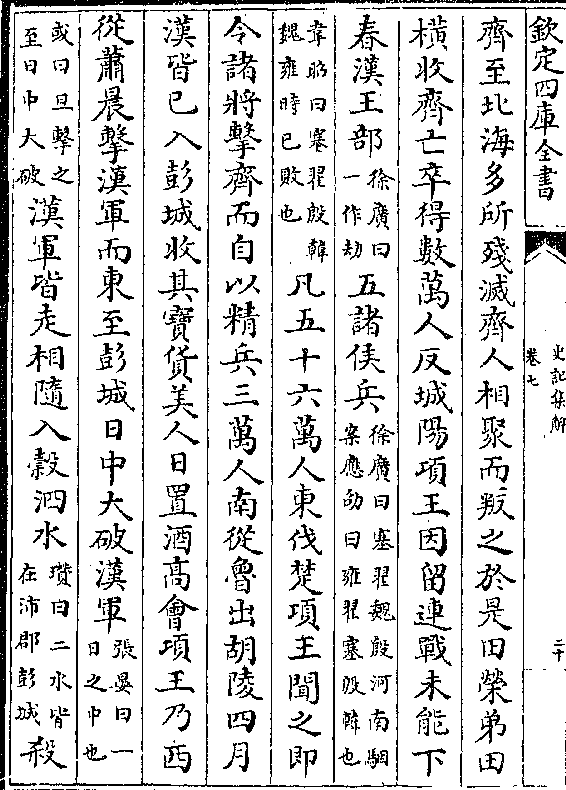 欽定四庫全書
史記集解
卷七
二十
齊至北海多所殘滅齊人相聚而叛之於是田榮弟田
横收齊亡卒得數萬人反城陽項王因留連戰未能下
春漢王部徐廣曰一作劫五諸侯兵徐廣曰塞翟魏殷河南駰案應劭曰雍翟塞殷韓也
韋昭曰塞翟殷韓魏雍時已敗也凡五十六萬人東伐楚項王聞之即
令諸將擊齊而自以精兵三萬人南從魯出胡陵四月
漢皆已入彭城收其寶貨美人日置酒髙會項王乃西
從蕭晨擊漢軍而東至彭城日中大破漢軍張晏曰一日之中也
或曰旦擊之至日中大破漢軍皆走相隨入穀泗水瓚曰二水皆在沛郡彭城殺